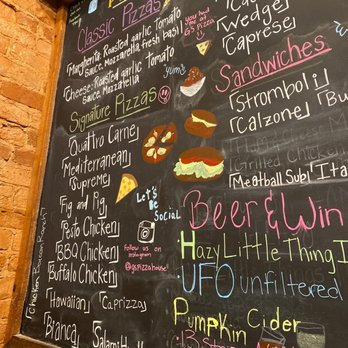 Classic Pizzas
「Margherita: Roasted garlic Tomato
Sauce, Mozzarella, fresh basil
「Cheese: Roasted garlic Tomato
Sauce, Mozzarella
Signature Pizzas
「Quattro Carne」
「Mediterranean」
「Supreme」
「Fig and Pig」
「Pesto Chicken」
「BBQ Chicken」
「Buffalo Chicken」
「Chicken Bacon Ranch」
「Hawaiian」
「Caprizza」
「Bianca」
you had
you at
G's
pizza
yum's
Let's
Be
Social
Follow us
on
Instagram
@gspizzahouse!
「Wedge」
「Caprese」
Sandwiches
「Stromboli」
「Calzone」
「Grilled Chicken
「Meatball Sub」
Beer & Win
Hazy Little Thing I
UFO unfiltered
Pumpkin Cider